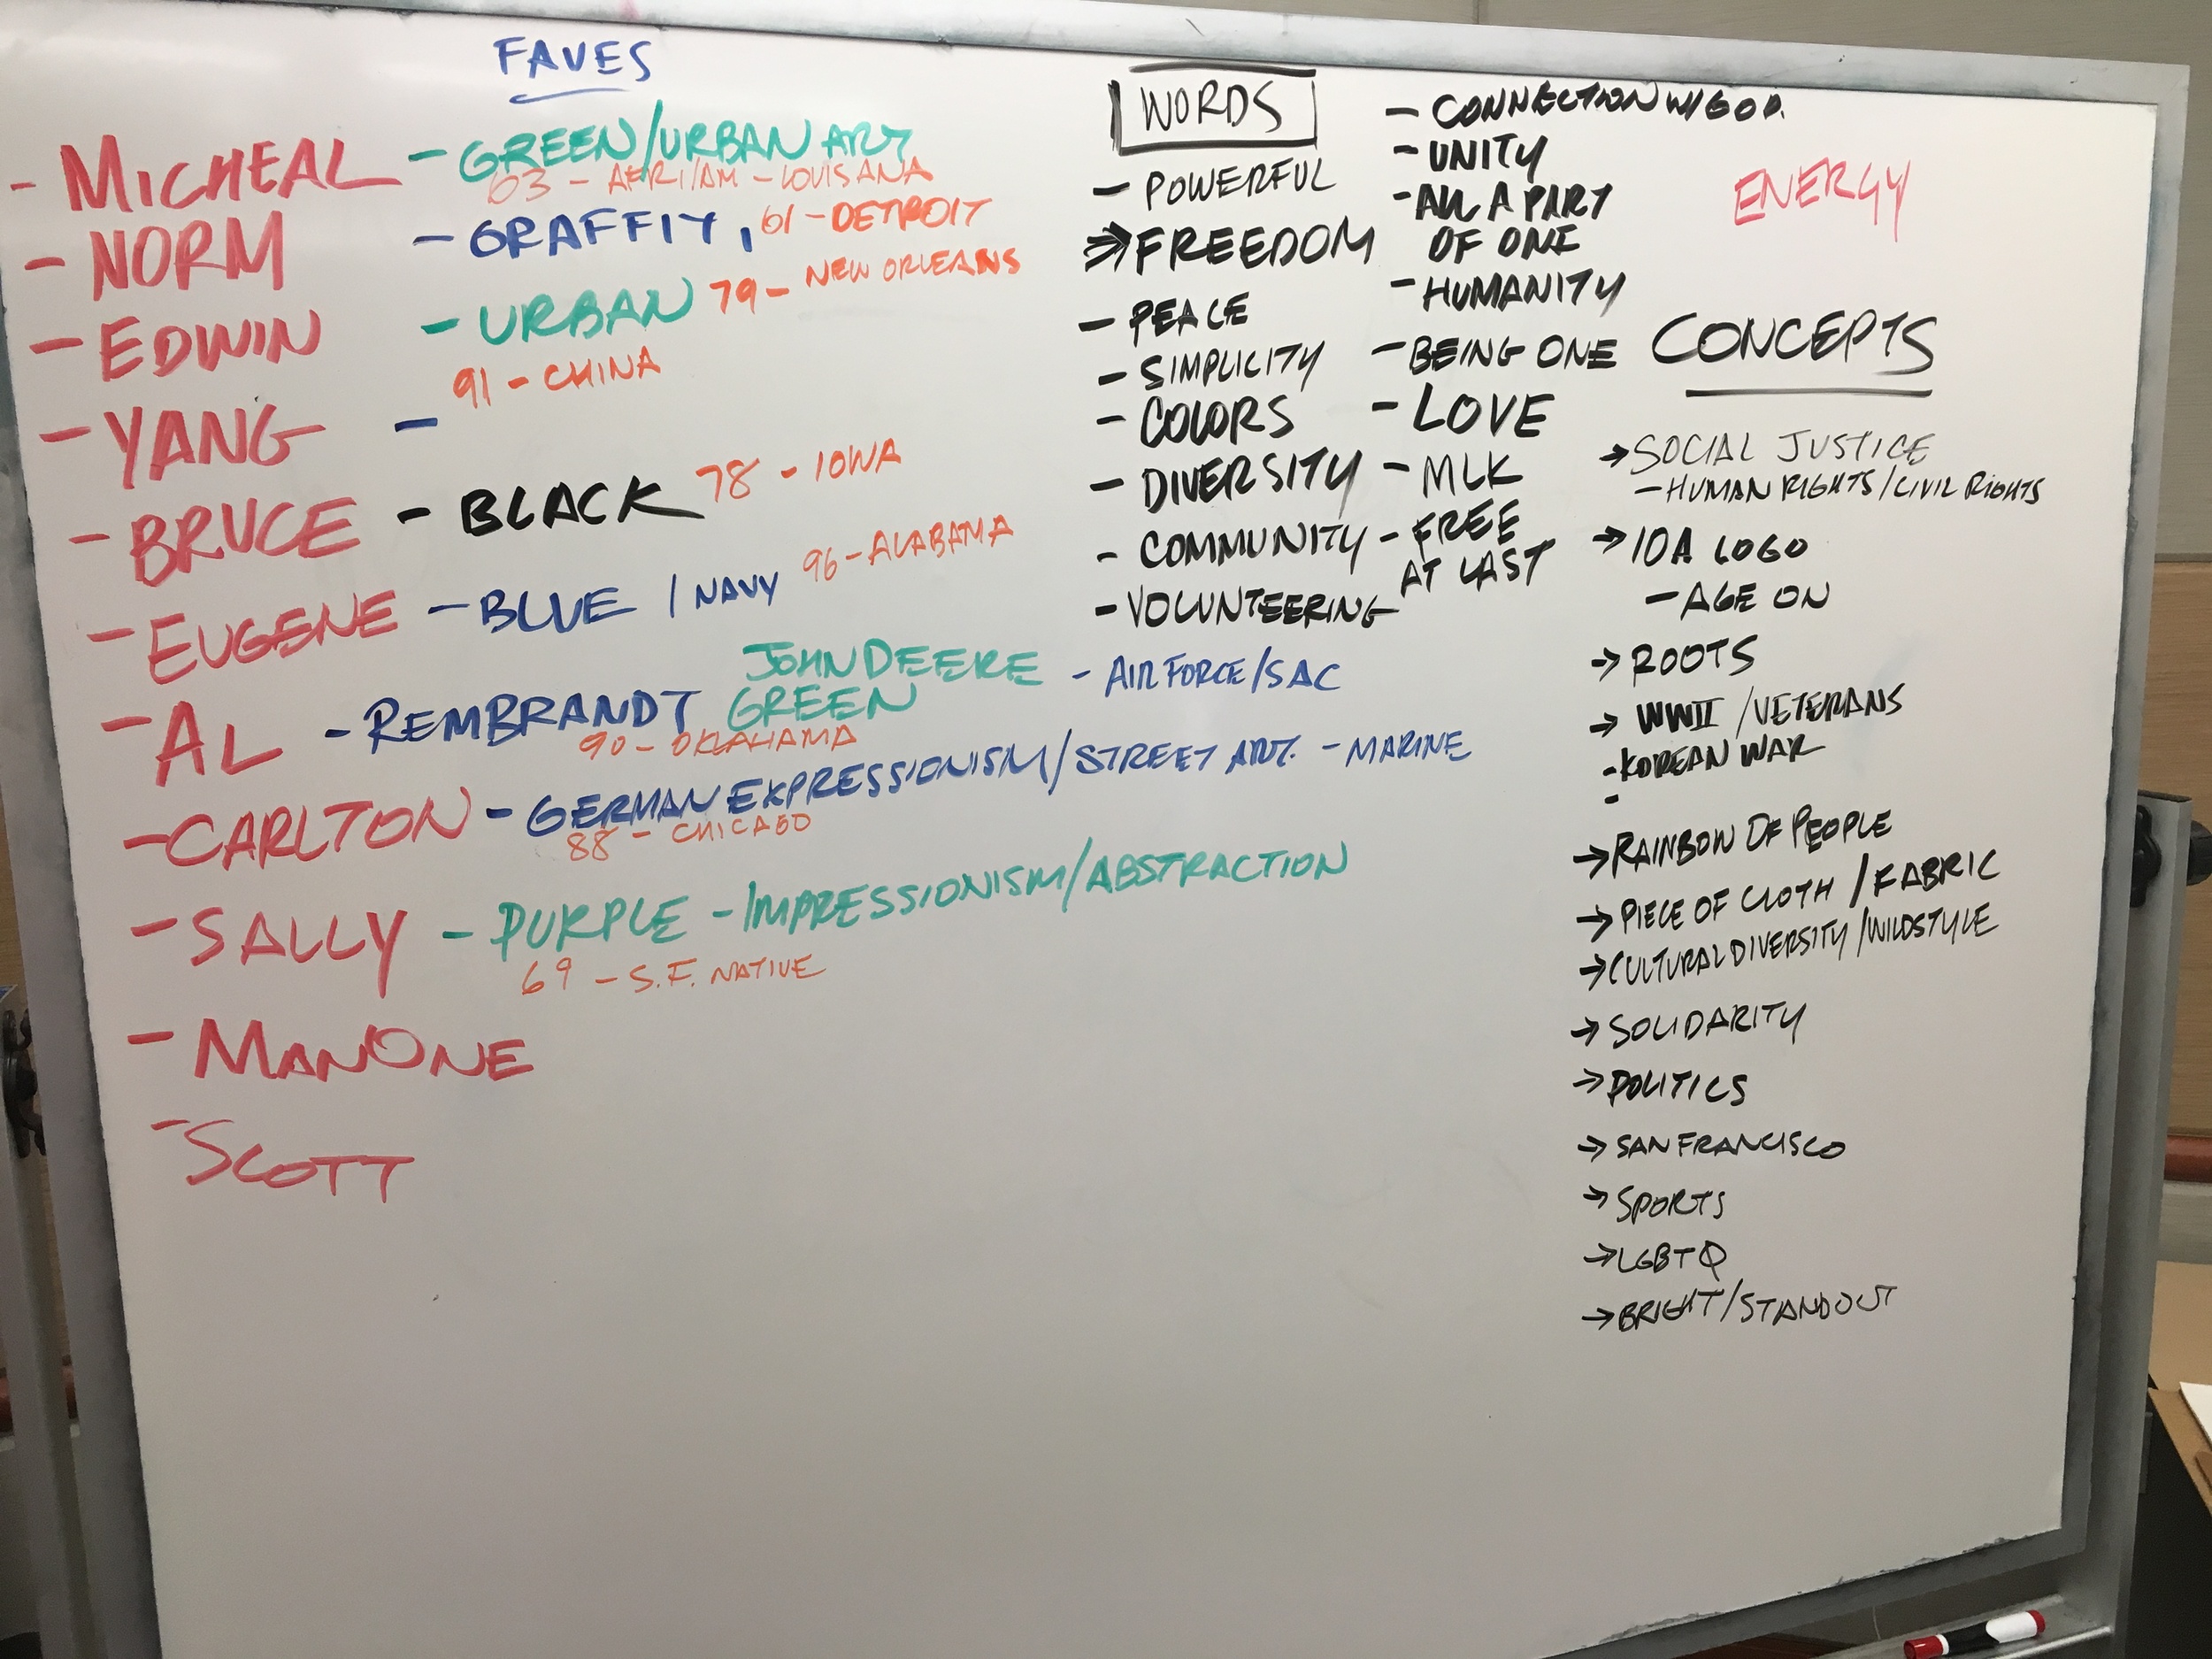 FAVES
- MICHEAL - GREEN/URBAN ART
63 - AFRI/AM - LOUISANA
- NORM - GRAFFITI, 61 - DETROIT
- EDWIN - URBAN 79 - NEW ORLEANS
- YANG - 91 - CHINA
- BRUCE - BLACK 78 - IOWA
- EUGENE - BLUE / NAVY 96 - ALABAMA
- AL - REMBRANDT JOHN DEERE GREEN - AIR FORCE/SAC
90 - OKLAHAMA
- CARLTON - GERMAN EXPRESSIONISM/STREET ART. - MARINE
88 - CHICAGO
- SALLY - PURPLE - IMPRESSIONISM/ABSTRACTION
69 - S.F. NATIVE
- MANONE
- SCOTT
WORDS
- POWERFUL
⇒ FREEDOM
- PEACE
- SIMPLICITY
- COLORS
- DIVERSITY
- COMMUNITY
- VOLUNTEERING
- CONNECTION W/ GOD.
- UNITY
- ALL A PART
OF ONE
- HUMANITY
- BEING ONE
- LOVE
- MLK
- FREE
AT LAST
ENERGY
CONCEPTS
→ SOCIAL JUSTICE
- HUMAN RIGHTS/CIVIL RIGHTS
→ IOA LOGO
- AGE ON
→ ROOTS
→ WWII / VETERANS
- KOREAN WAR
-
→ RAINBOW OF PEOPLE
→ PIECE OF CLOTH / FABRIC
→ CULTURAL DIVERSITY / WILDSTYLE
→ SOLIDARITY
→ POLITICS
→ SAN FRANCISCO
→ SPORTS
→ LGBTQ
→ BRIGHT/STANDOUT